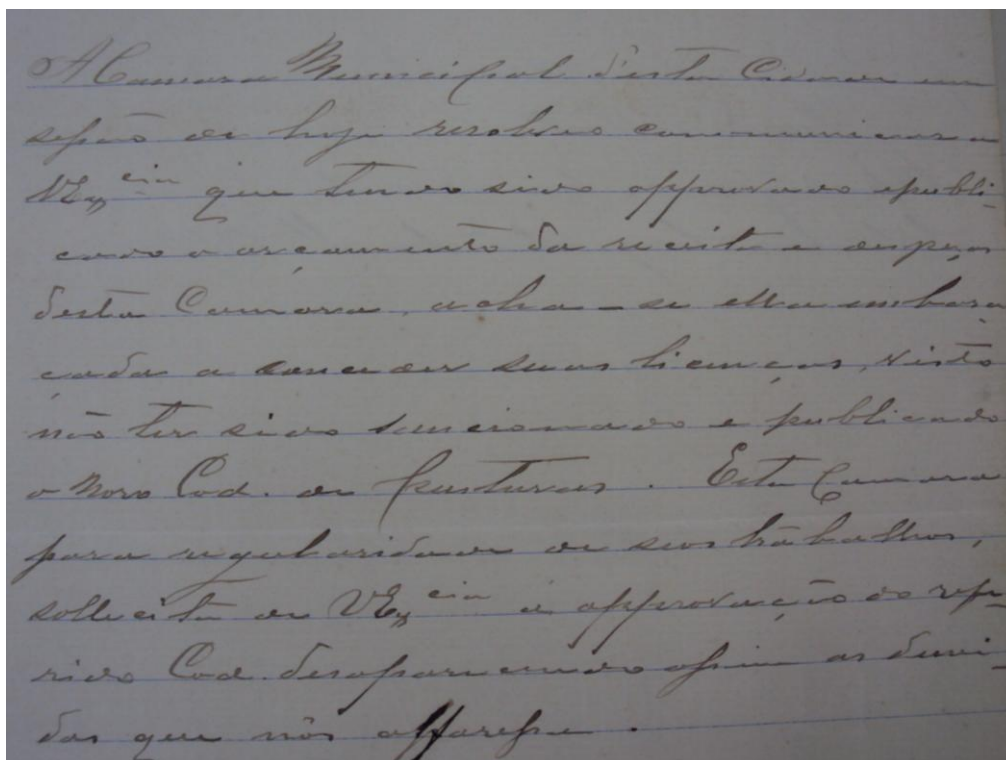 A Camara Municipal d'esta Cidade em
sessão de hoje resolveo communicar a
VEx.cia que tendo sido approvado e publi-
cado o orçamento da receita e despeza
desta Camara, acha-se ella embara
çada a conceder suas licenças, visto
não ter sido sanccionado e publicado
o novo Cod. de Pusturas. Esta Camara
para regularidade de seos trabalhos,
sollecita de VEx.cia a approvação do refe-
rido Cod. desaparecendo assim as duvi-
das que nós